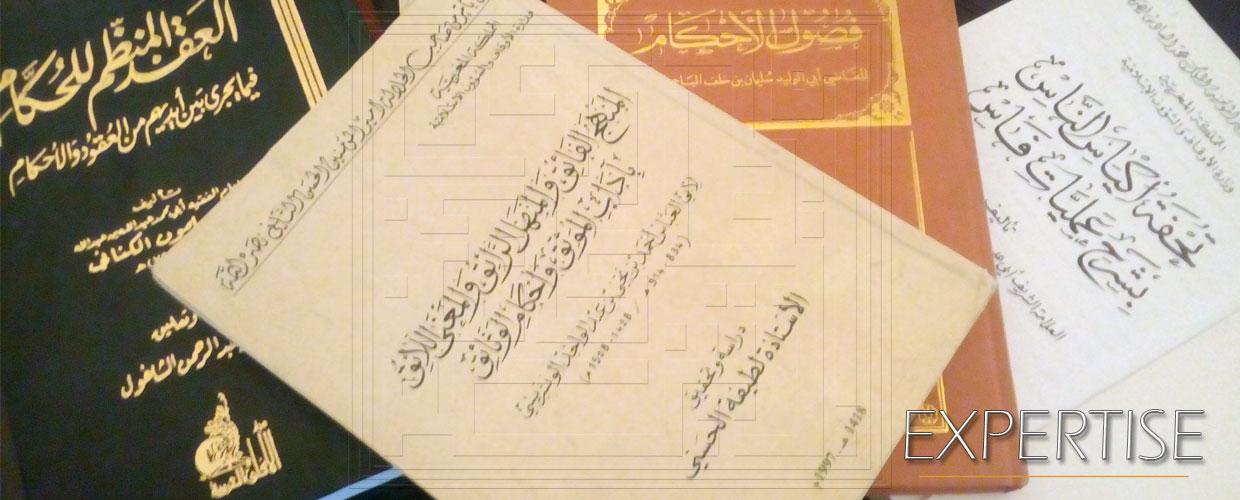 العقد المنظم للحكام
فيما يجرى بين أيديهم من العقود والأحكام
تأليف
الكناني
عبد الرحمن الشاغول
المملكة المغربية
وزارة الأوقاف والشؤون الإسلامية
المنهج الفائق والمنهل الرائق والمعنى اللائق
بآداب الموثق وأحكام الوثائق
لأبي العباس أحمد بن يحيى بن عبد الواحد الونشريسي
(834 - 914 هـ / 1428 - 1508 م)
دراسة وتحقيق
الأستاذة لطيفة الحسني
1418 هـ - 1997 م
فصول الأحكام
للقاضي أبي الوليد سليمان بن خلف الباجي
المملكة المغربية
وزارة الأوقاف والشؤون الإسلامية
تحفة أكياس الناس
بشرح عمليات فاس
تأليف
العلامة الشريف أبي
EXPERTISE